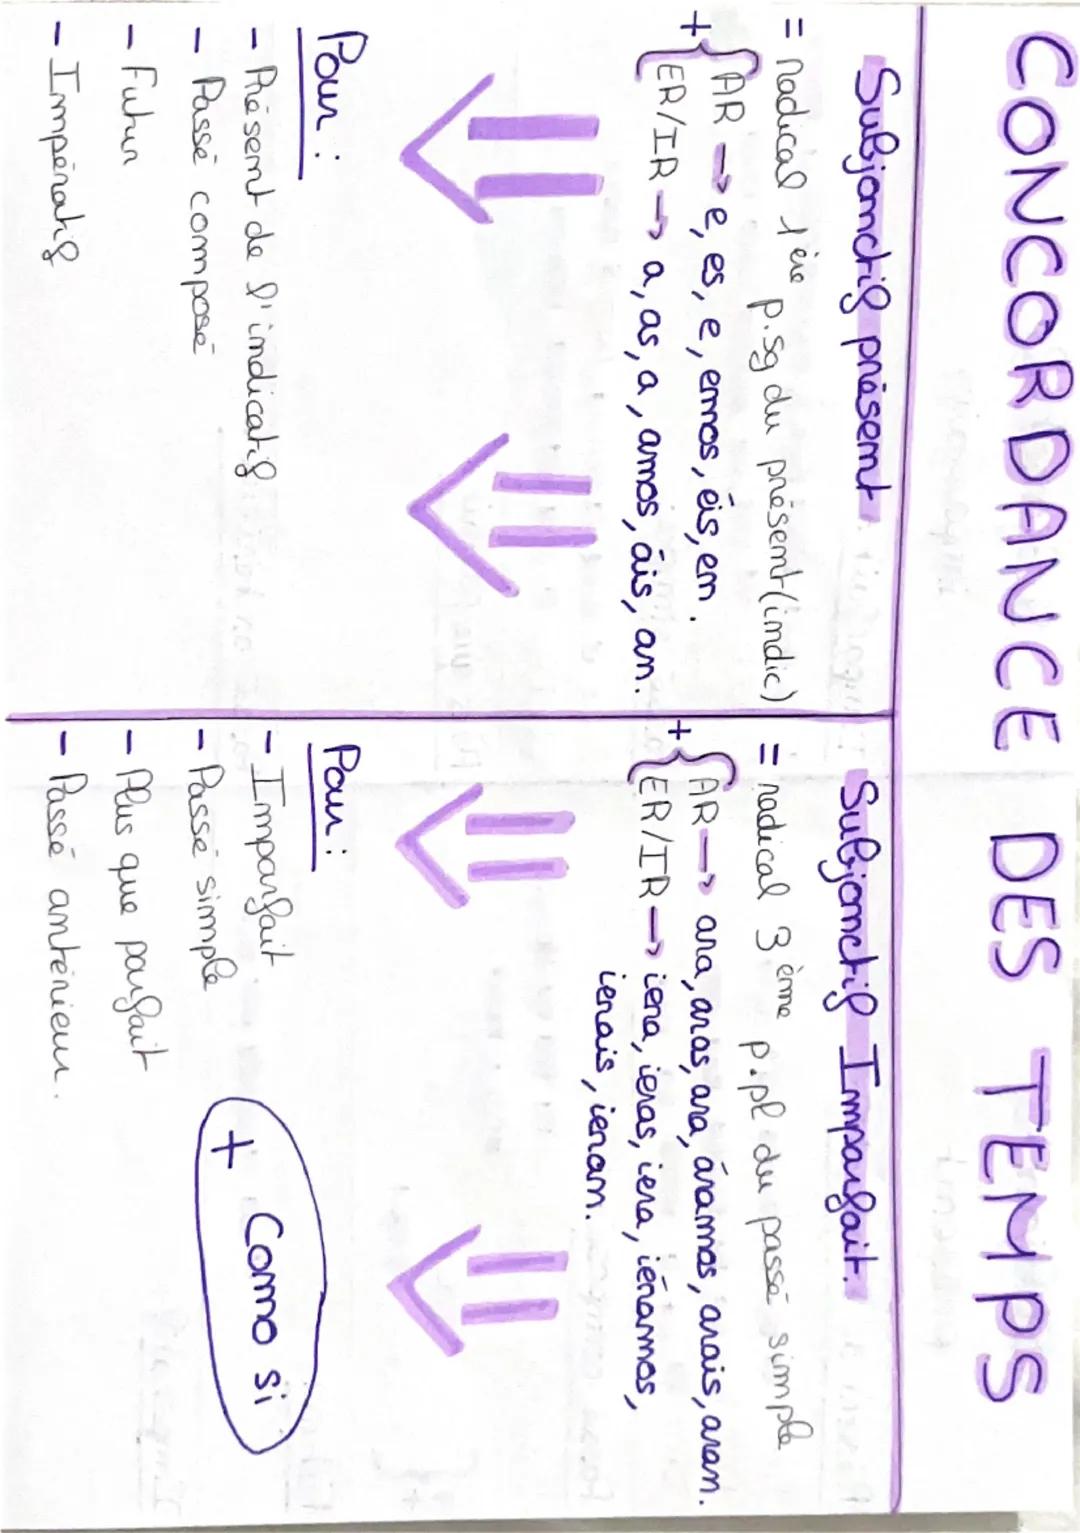 CONCORDANCE DES TEMPS
Subjonctif présent
= radical 1ère p.sg du présent (indic)
+ { AR → e, es, e, emos, éis, en.
ER/IR → a, as, a, amos, áis, an.
Pour :
- Présent de l'indicatif
- Passé composé
- Futur
- Impératif
Subjonctif Imparfait.
= radical 3ème p.pl du passé simple
+ { AR → ara, aras, ara, áramos, arais, aran.
ER/IR → iera, ieras, iera, iéramos,
ierais, ieram.
Pour :
- Imparfait
- Passé simple
- Plus que parfait
- Passé antérieur.
+ Como si